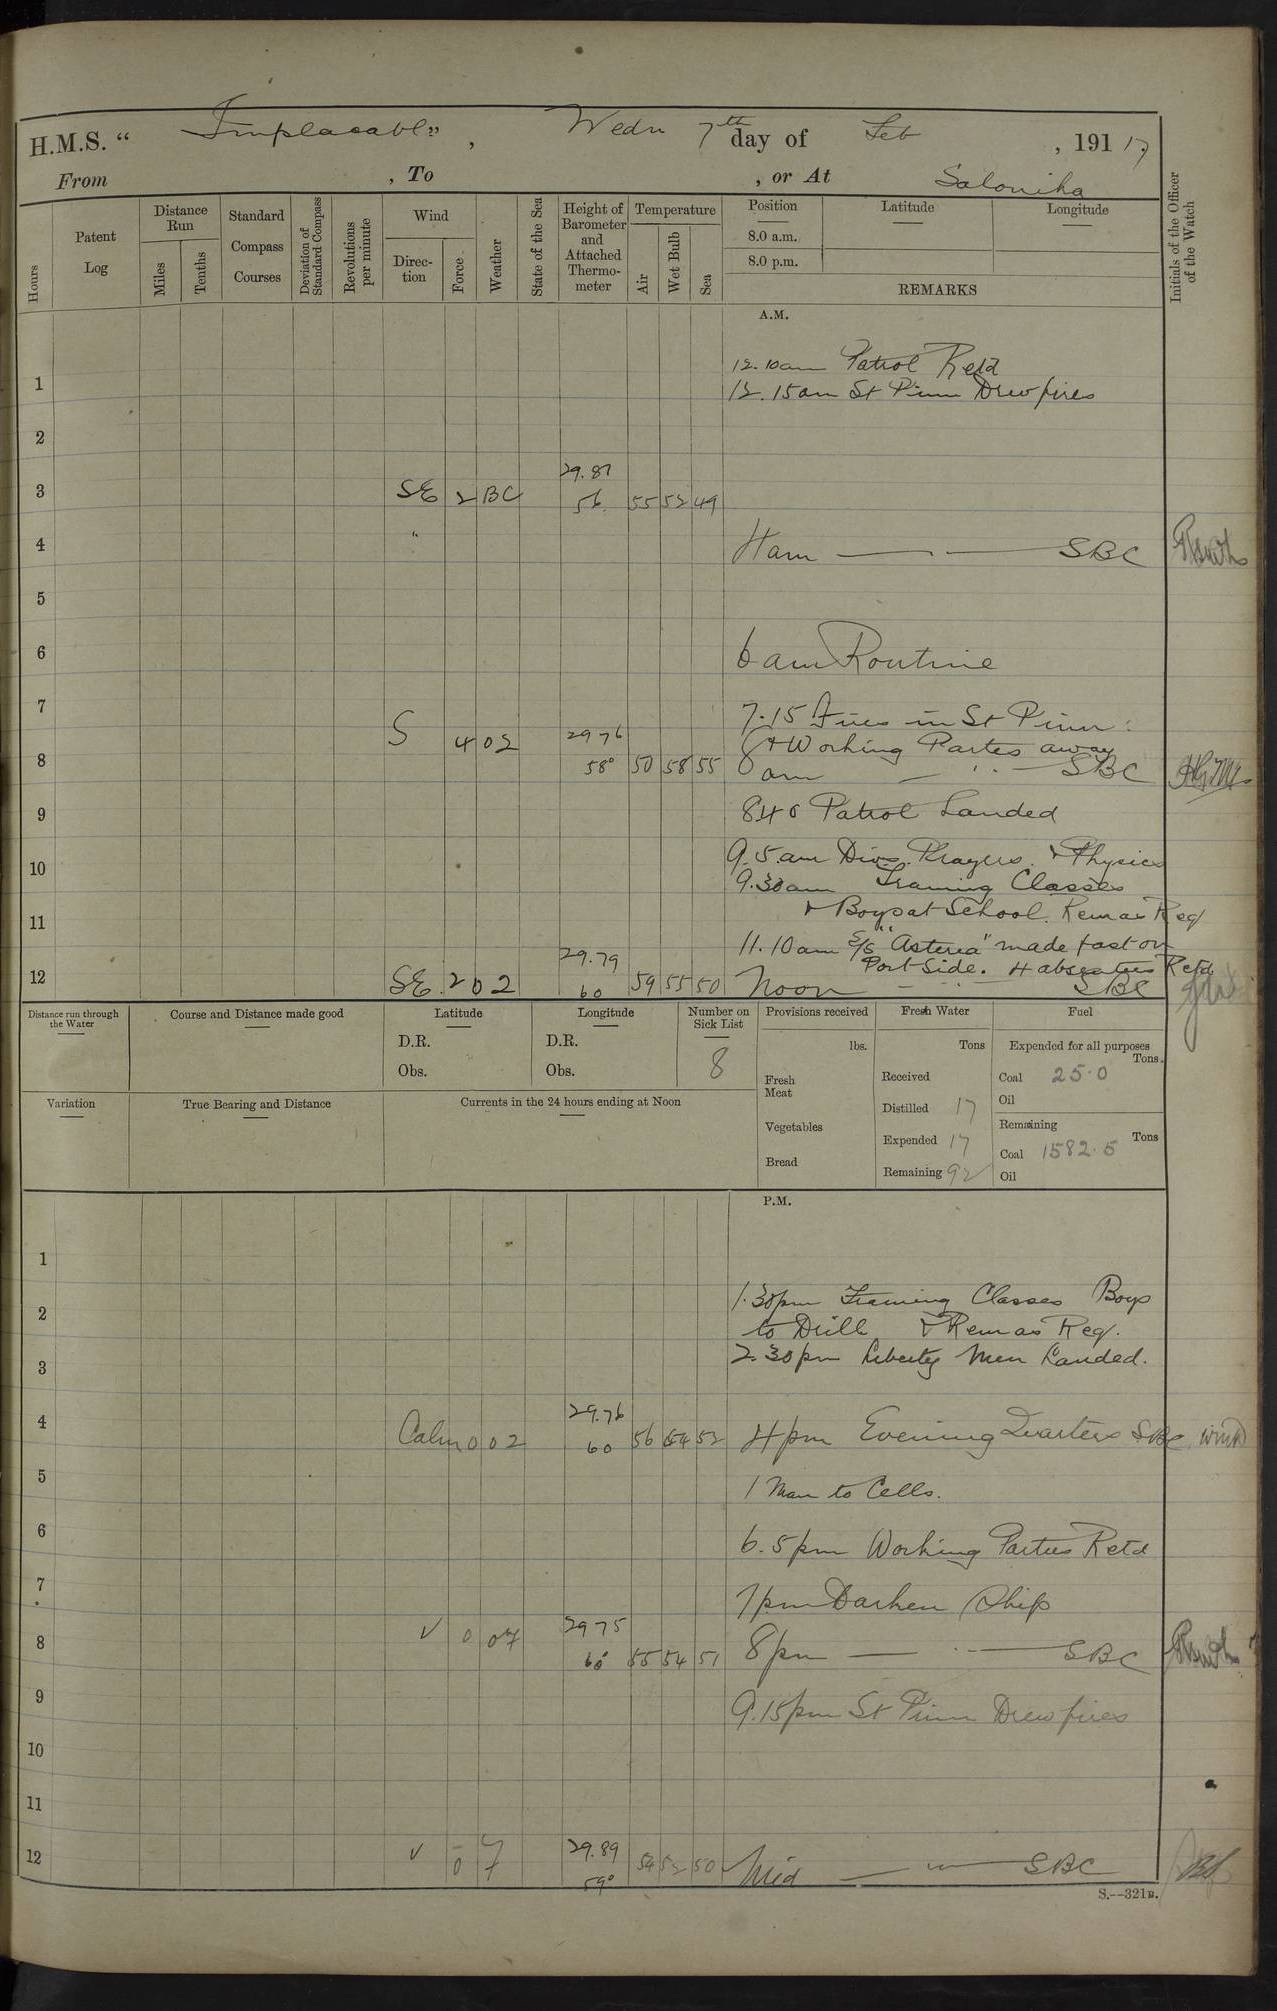 H.M.S. “ Implacable” , Wedn 7th day of Feb , 191 17
From , To , or At Salonika
Hours
Patent Log
Distance Run
Miles
Tenths
Standard Compass Courses
Deviation of Standard Compass
Revolutions per minute
Wind
Direction
Force
Weather
State of the Sea
Height of Barometer and Attached Thermometer
Temperature
Air
Wet Bulb
Sea
Position
8.0 a.m.
8.0 p.m.
Latitude
Longitude
REMARKS
Initials of the Officer of the Watch
A.M.
12.10am Patrol Retd
1 12.15am St Pinn Drew fires
2
3 SE 2 BC 29.87 56 55 52 49
4 " 4am SBC
5
6 6 am Routine
7 7.15 Fires in St Pinn:
& Working Partes away
8 S 4 02 29 76 58° 50 58 55 8 am SBC
9 840 Patrol Landed
9.5 am Divs. Prayers & Physics
10 9.30am Training Classes
11 & Boys at School. Rem as Req
11.10am S/S "Asteria" made fast on
Port Side. 4 absentees Retd
12 SE 2 02 29.79 60 59 55 50 Noon SBC
Distance run through the Water
Course and Distance made good
Latitude
D.R.
Obs.
Longitude
D.R.
Obs.
Number on Sick List
8
Provisions received
lbs.
Fresh Meat
Vegetables
Bread
Fresh Water
Tons
Received
Distilled 17
Expended 17
Remaining 92
Fuel
Expended for all purposes
Tons.
Coal 25.0
Oil
Remaining
Tons
Coal 1582.5
Oil
Variation
True Bearing and Distance
Currents in the 24 hours ending at Noon
P.M.
1
1.30pm Training Classes Boys
2 to Drill & Rem as Req.
3 2.30pm Liberty Men Landed.
4 Calm 0 02 29.76 60 56 54 52 4pm Evening Quarters SBC
5 1 Man to Cells.
6 6.5pm Working Parties Retd
7 7pm Darken Ship
8 0 07 29 75 60 55 54 51 8pm SBC
9 9.15pm St Pinn Drew fires
10
11
12 0 7 29.89 59° 54 52 50 Mid SBC
S.--321B.